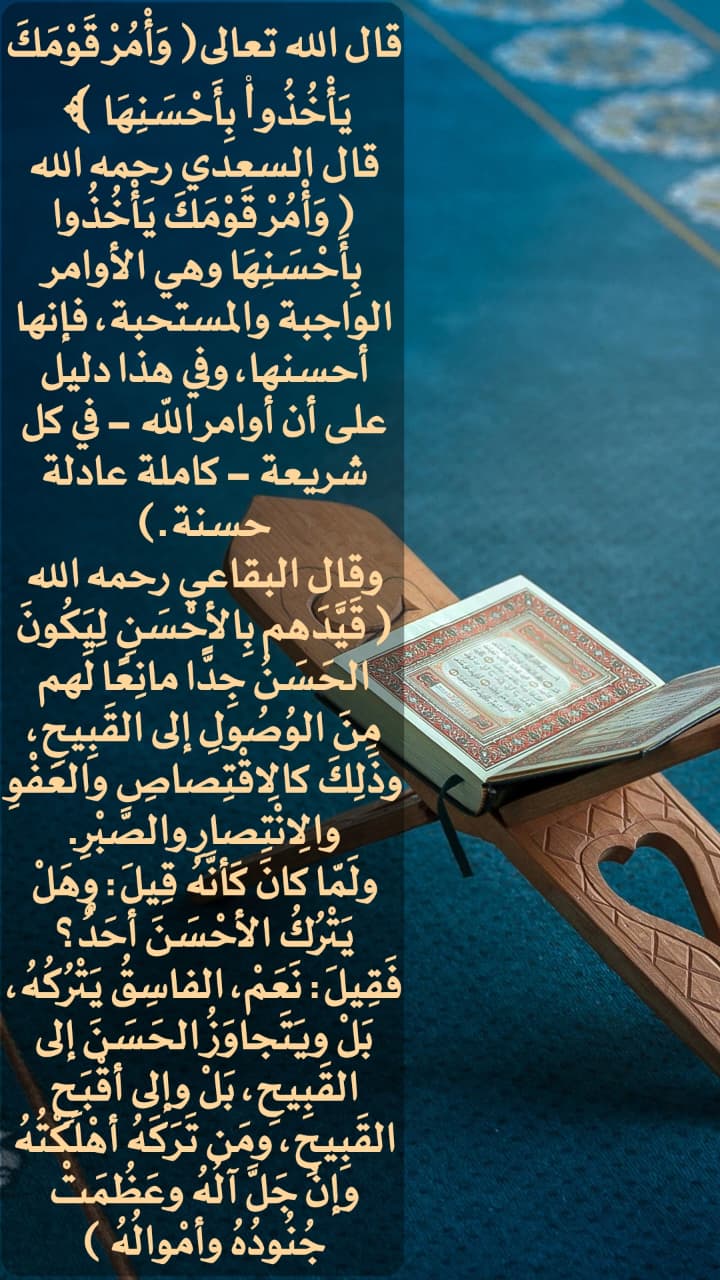 قال الله تعالى( وَأْمُرْ قَوْمَكَ
يَأْخُذُواْ بِأَحْسَنِهَا ﴾
قال السعدي رحمه الله
( وَأْمُرْ قَوْمَكَ يَأْخُذُوا
بِأَحْسَنِهَا وهي الأوامر
الواجبة والمستحبة، فإنها
أحسنها، وفي هذا دليل
على أن أوامر اللّه – في كل
شريعة – كاملة عادلة
حسنة .)
وقال البقاعي رحمه الله
( قَيَّدَهم بِالأحْسَنِ لِيَكُونَ
الحَسَنُ جِدًّا مانِعًا لَهم
مِنَ الوُصُولِ إلى القَبِيحِ،
وذَلِكَ كالِاقْتِصاصِ والعَفْوِ
والِانْتِصارِ والصَّبْرِ.
ولَمّا كانَ كَأنَّهُ قِيلَ: وهَلْ
يَتْرُكُ الأحْسَنَ أحَدٌ؟
فَقِيلَ: نَعَمْ، الفاسِقُ يَتْرُكُهُ،
بَلْ ويَتَجاوَزُ الحَسَنَ إلى
القَبِيحِ، بَلْ وإلى أقْبَحِ
القَبِيحِ، ومَن تَرَكَهُ أهْلَكْتُهُ
وإنْ جَلَّ آلُهُ وعَظُمَتْ
جُنُودُهُ وأمْوالُهُ )